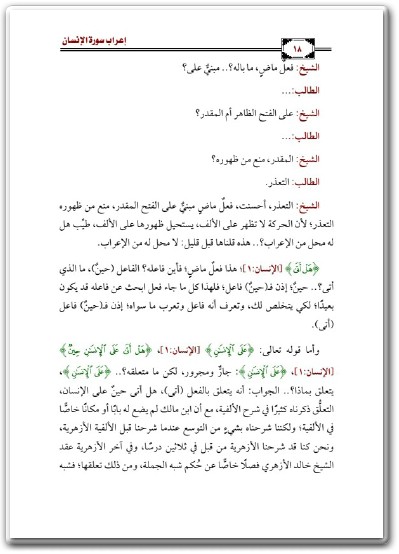 إعراب سورة الإنسان
١٨
الشيخ: فعلٌ ماضٍ، ما باله؟.. مبنيٌّ على؟
الطالب:...
الشيخ: على الفتح الظاهر أم المقدر؟
الطالب:...
الشيخ: المقدر، منع من ظهوره؟
الطالب: التعذر.
الشيخ: التعذر، أحسنت، فعلٌ ماضٍ مبنيٌّ على الفتح المقدر، منع من ظهوره
التعذر؛ لأن الحركة لا تظهر على الألف، يستحيل ظهورها على الألف، طيِّب هل
له محل من الإعراب؟.. هذه قلناها قبل قليل: لا محل له من الإعراب.
﴿هَلْ أَتَىٰ﴾ [الإنسان:١]؛ هذا فعلٌ ماضٍ؛ فأين فاعله؟ الفاعل (حينٌ)، ما الذي
أتى؟.. حينٌ؛ إذن فـ(حينٌ) فاعل؛ فلهذا كل ما جاء فعل ابحث عن فاعله قد يكون
بعيدًا؛ لكي يتخلص لك، وتعرف أنه فاعل وتعرب ما سواه؛ إذن فـ(حينٌ) فاعل
(أتى).
وأما قوله تعالى: ﴿عَلَى ٱلْإِنسَٰنِ﴾ [الإنسان:١]، ﴿هَلْ أَتَىٰ عَلَى ٱلْإِنسَٰنِ حِينٌ﴾
[الإنسان:١]، ﴿عَلَى ٱلْإِنسَٰنِ﴾: جارٌّ ومجرور، لكن ما متعلقه؟.. ﴿عَلَى ٱلْإِنسَٰنِ﴾،
يتعلق بماذا؟.. الجواب: أنه يتعلق بالفعل (أتى)، هل أتى حينٌ على الإنسان،
التعلُّق ذكرناه كثيرًا في شرح الألفية، مع أن ابن مالك لم يضع له بابًا أو مكانًا خاصًّا
في الألفية؛ ولكننا شرحناه بشيءٍ من التوسع عندما شرحنا قبل الألفية الأزهرية،
ونحن كنا قد شرحنا الأزهرية من قبل في ثلاثين درسًا، وفي آخر الأزهرية عقد
الشيخ خالد الأزهري فصلًا خاصًّا عن حُكم شبه الجملة، ومن ذلك تعلقها؛ فشبه